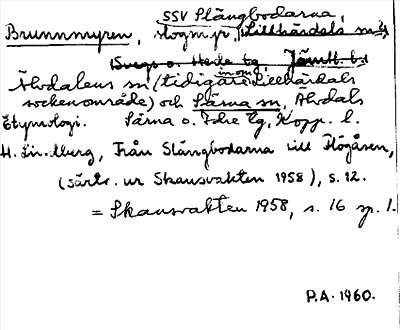 SSV Slängbodarna,
Brunnmyren, skogm.pr, Lillhärdals sn
Svegs o. Hede tg, Jämtl. l.
Älvdalens sn (tidigare inom Lillhärdals
sockenområde) och Särna sn, Älvdals
Etymologi. Särna o. Idre tg, Kopp. l.
H. Lindberg, Från Slängbodarna till Högåsen,
(särtr. ur Skansvakten 1958), s. 12.
= Skansvakten 1958, s. 16 sp. 1.
P.A. 1960.